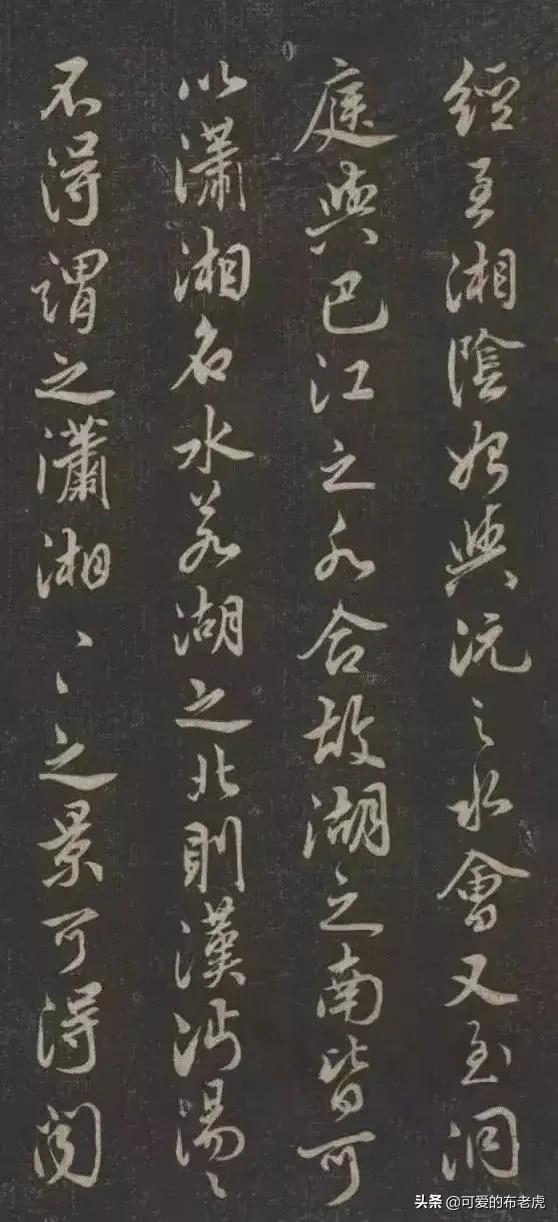 經至湘陰始與沅之水會又至洞
庭與巴江之水合故湖之南皆可
以瀟湘名水若湖之北則漢沔湯〻
不得謂之瀟湘〻〻之景可得聞
头条 @可爱的布老虎